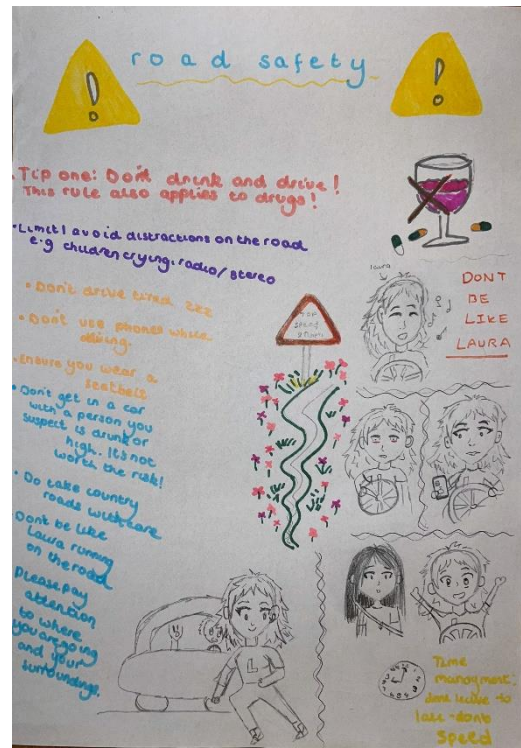 road safety
Tip one: Don't drink and drive!
This rule also applies to drugs!
•Limit/avoid distractions on the road
e.g children crying, radio/stereo
• Don't drive tired zzz
• Don't use phones while
driving.
•Ensure you wear a
seatbelt
• Don't get in a car
with a person you
suspect is drunk or
high. It's not
worth the risk!
• Do take country
roads with care
Dont be like
Laura running
on the road
Please pay
attention
to where
you are going
and your
surroundings.
laura
DONT
BE
LIKE
LAURA
L
Time
managment:
dont leave to
late - dont
speed